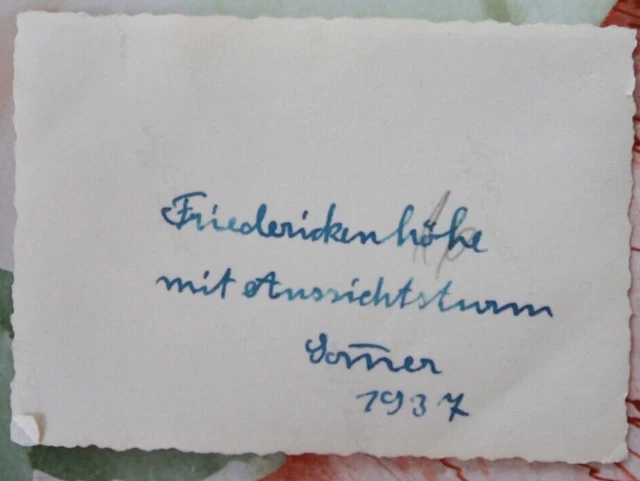 Friederickenhöhe
mit Aussichtsturm
Som̅er
1937